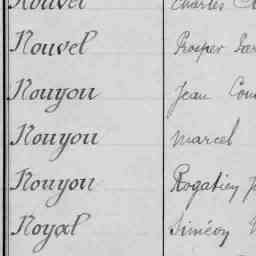 Nouvel Charles
Nouvel Prosper
Nouyou Jean
Nouyou Marcel
Nouyou Rogatien
Noyal Siméon